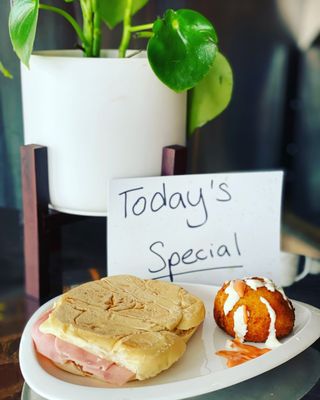 Today's
Special